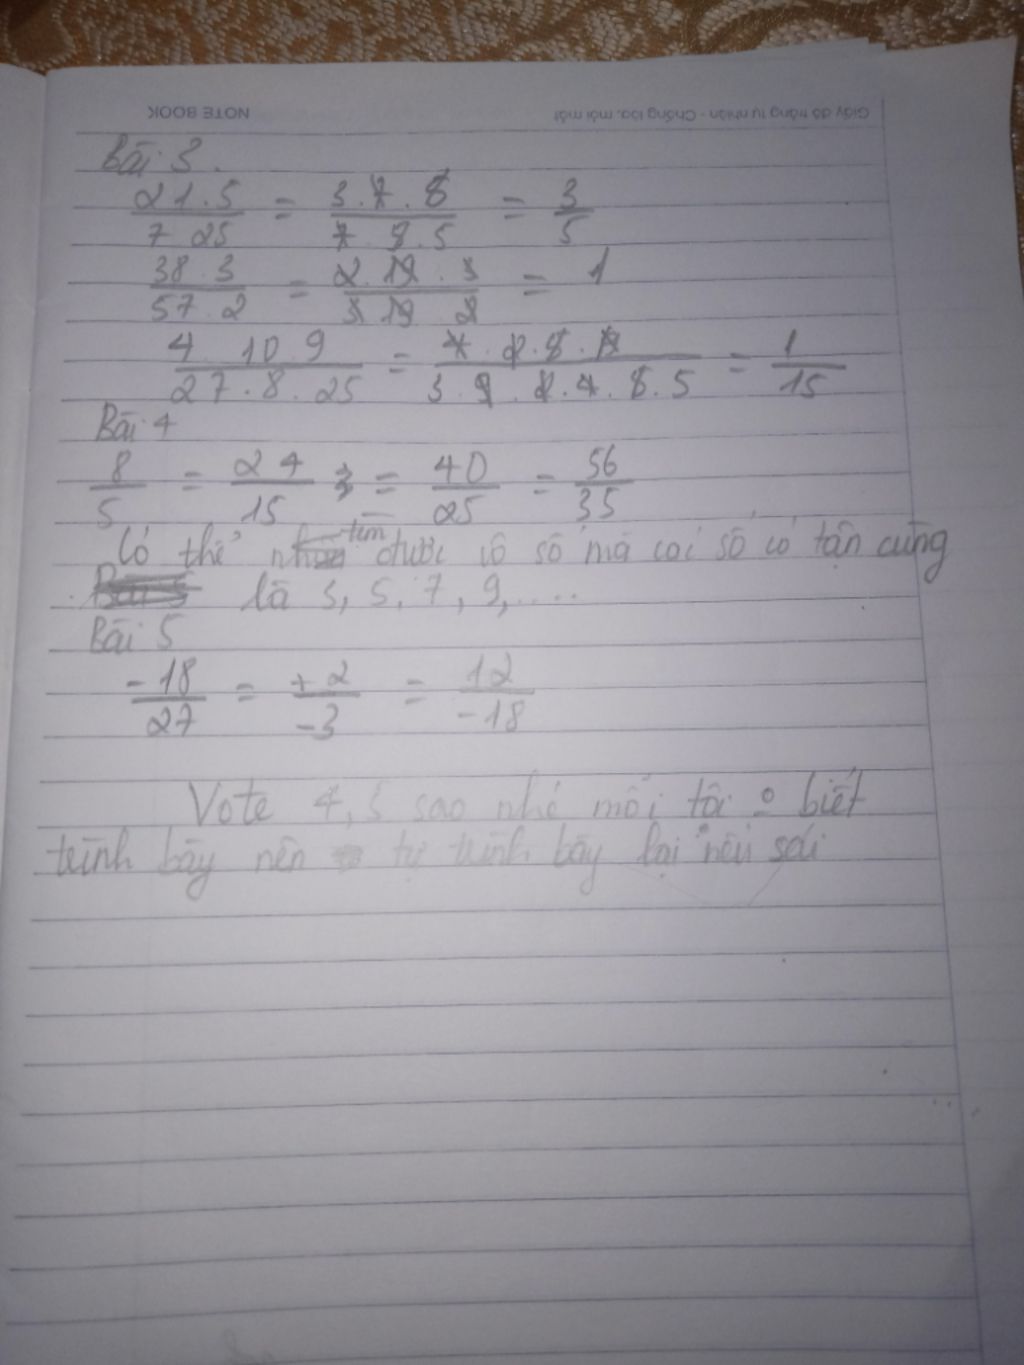 Giấy độ trắng tự nhiên - Chống lóa, mỏi mắt
NOTE BOOK
Bài 3.
21.5 / 7 25 = 3.7.5 / 7 5.5 = 3/5
38 3 / 57 2 = 2.19.3 / 3 19 2 = 1
4 10 9 / 27.8.25 = 4.2.5.9 / 3.9.2.4.5.5 = 1/15
Bài 4
8/5 = 24/15 = 40/25 = 56/35
Có thể tìm được vô số mà các số có tận cùng
là 3, 5, 7, 9,....
Bài 5
-18/27 = +2/-3 = 12/-18
Vote 4,5 sao nhé mỗi tội 0 biết
trình bày nên tự trình bày lại nếu sai